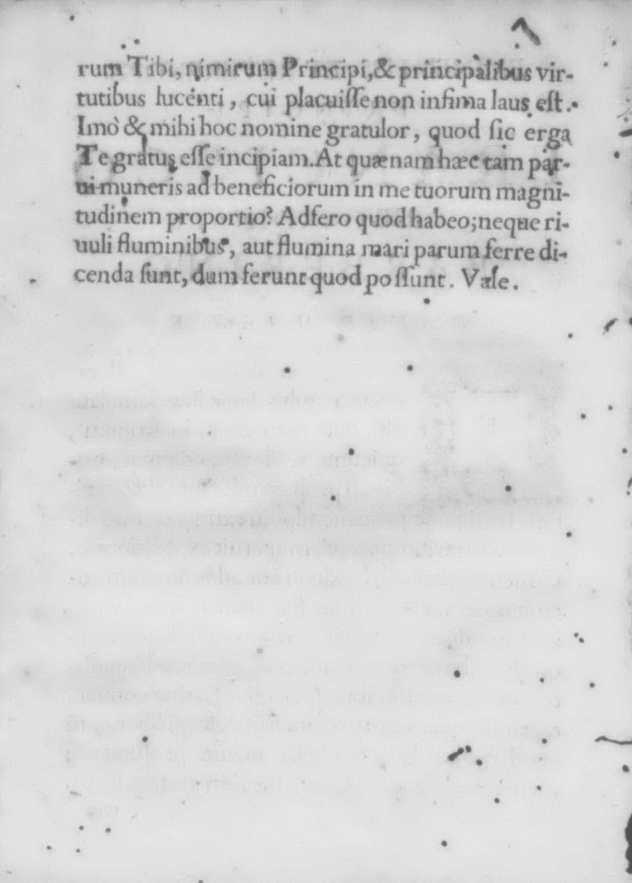 rum Tibi, nimirum Principi, & principalibus vir-
tutibus lucenti, cui placuisse non infima laus est.
Imò & mihi hoc nomine gratulor, quod sic erga
Te gratus esse incipiam. At quænam hæc tam par-
ui muneris ad beneficiorum in me tuorum magni-
tudinem proportio? Adfero quod habeo; neque ri-
uuli fluminibus, aut flumina mari parum ferre di-
cenda sunt, dum ferunt quod possunt. Vale.